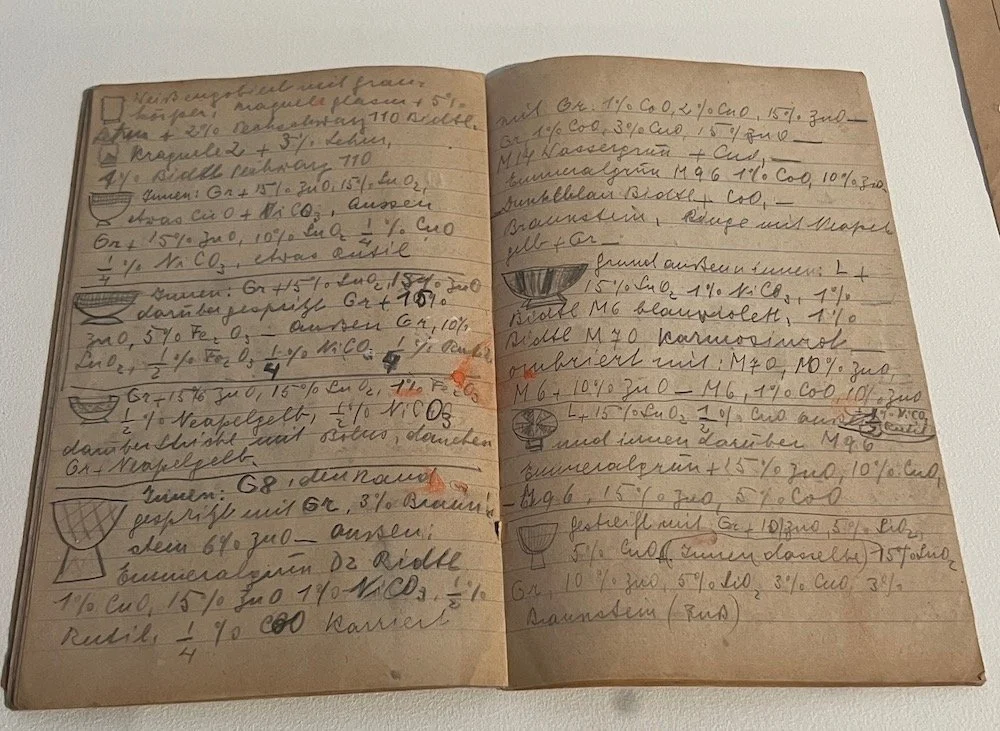 Weißengobiert mit grau-
körper, Kraqueleglasur + 5%
+ 2% Pechschwarz 110 Bidtl.
Kraquele 2 + 3% Lehm,
4% Bidtl Pechschwarz 110
Innen: Gr + 15% ZnO, 15% SnO2,
etwas CuO + NiCO3, aussen
Gr + 15% ZnO, 10% SnO2 1/4% CuO
1/4% NiCO3, etwas Rutil
Innen: Gr + 15% SnO2, 15% ZnO
darüber gespritzt Gr + 15%
ZnO, 5% Fe2O3 - außen Gr, 10%
SnO2, 1/2% Fe2O3 1/4% NiCO3 1/4% Rutil
Gr + 15% ZnO, 15% SnO2, 1% Fe2O3
1/2% Neapelgelb, 1/2% NiCO3
darüber Striche mit Bolus, daneben
Gr + Neapelgelb.
Innen: G8, den Rand
gespritzt mit Gr, 3% Braun-
stein 6% ZnO — außen:
Emmeralgrün Dz Bidtl
1% CuO, 15% ZnO 1% NiCO3, 1/2%
Rutil, 1/4% CoO Karriert
mit Gr. 1% CoO, 2% CuO, 15% ZnO —
Gr, 1% CoO, 3% CuO, 15% ZnO —
M14 Wassergrün + CuO, —
Emmeralgrün M96 1% CoO, 10% ZnO
Dunkelblau Bidtl + CoO, —
Braunstein, Ringe mit Neapel
gelb + Gr —
Grund außen innen: L +
15% SnO2 1% NiCO3, 1% —
Bidtl M6 blauviolett, 1%
Bidtl M70 Karmosinrot —
ombriert mit: M70, 10% ZnO,
M6 + 10% ZnO — M6, 1% CoO, 10% ZnO
L + 15% SnO2 1/2% CuO NiCO3 Rutil
und innen darüber M96
Emmeralgrün + 15% ZnO, 10% CuO,
— M96, 15% ZnO, 5% CoO
gestreift mit Gr + 10% ZnO, 5% SiO2,
5% CuO, (Innen dasselbe) 15% SnO2
Gr, 10% ZnO, 5% SiO2 3% CuO, 3%
Braunstein (ZnO)